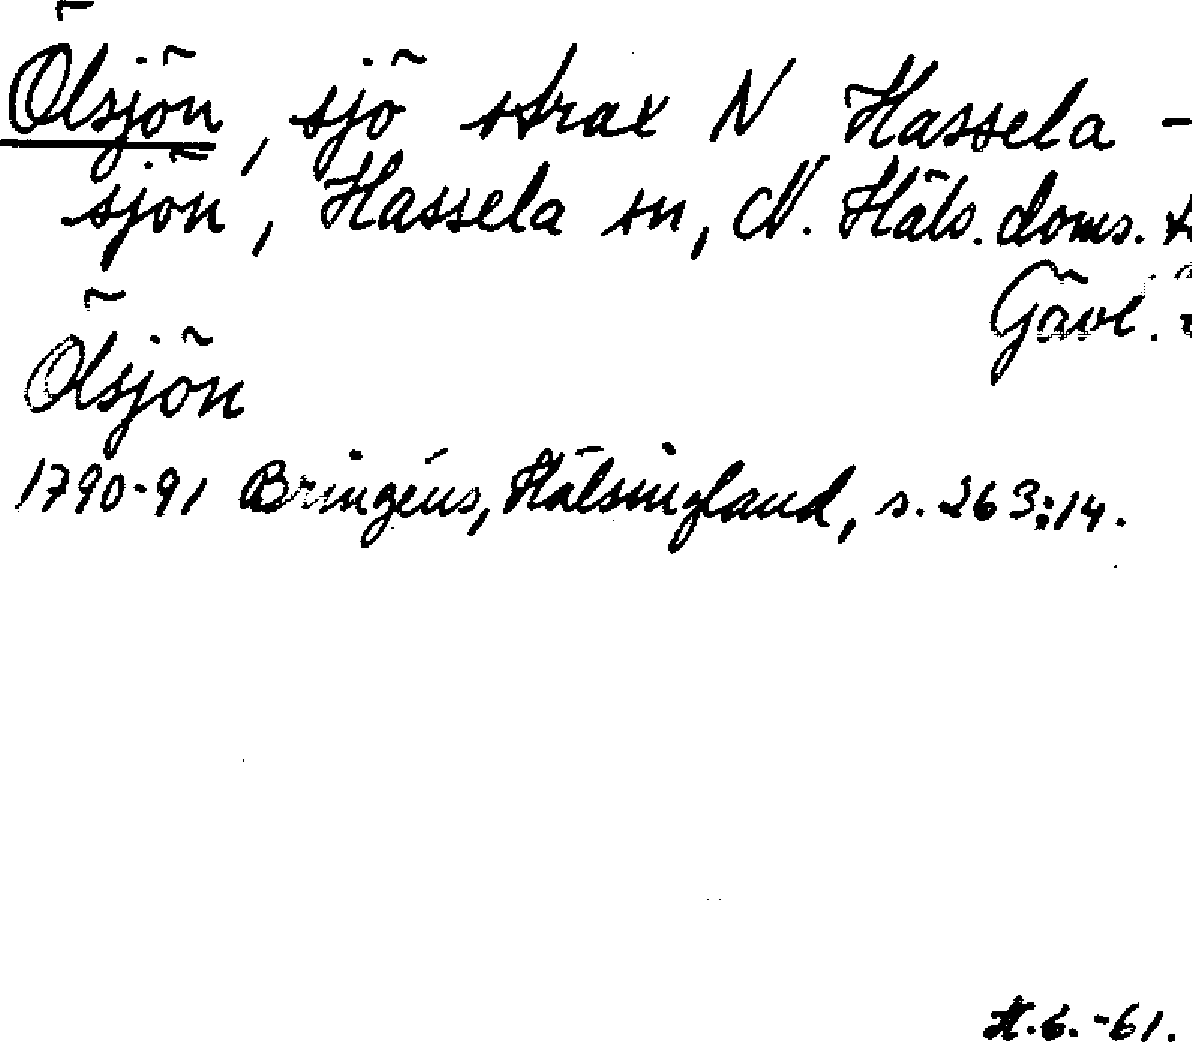 Ölsjön, sjö strax N Hassela -
sjön, Hassela sn, N. Häls. doms.
Gävl.
Ölsjön
1790-91 Bringéus, Hälsingland, s. 263:14.
H.G.-61.